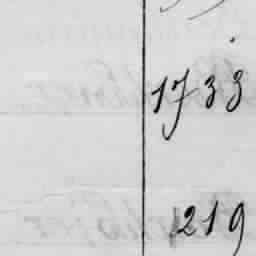 1733
219